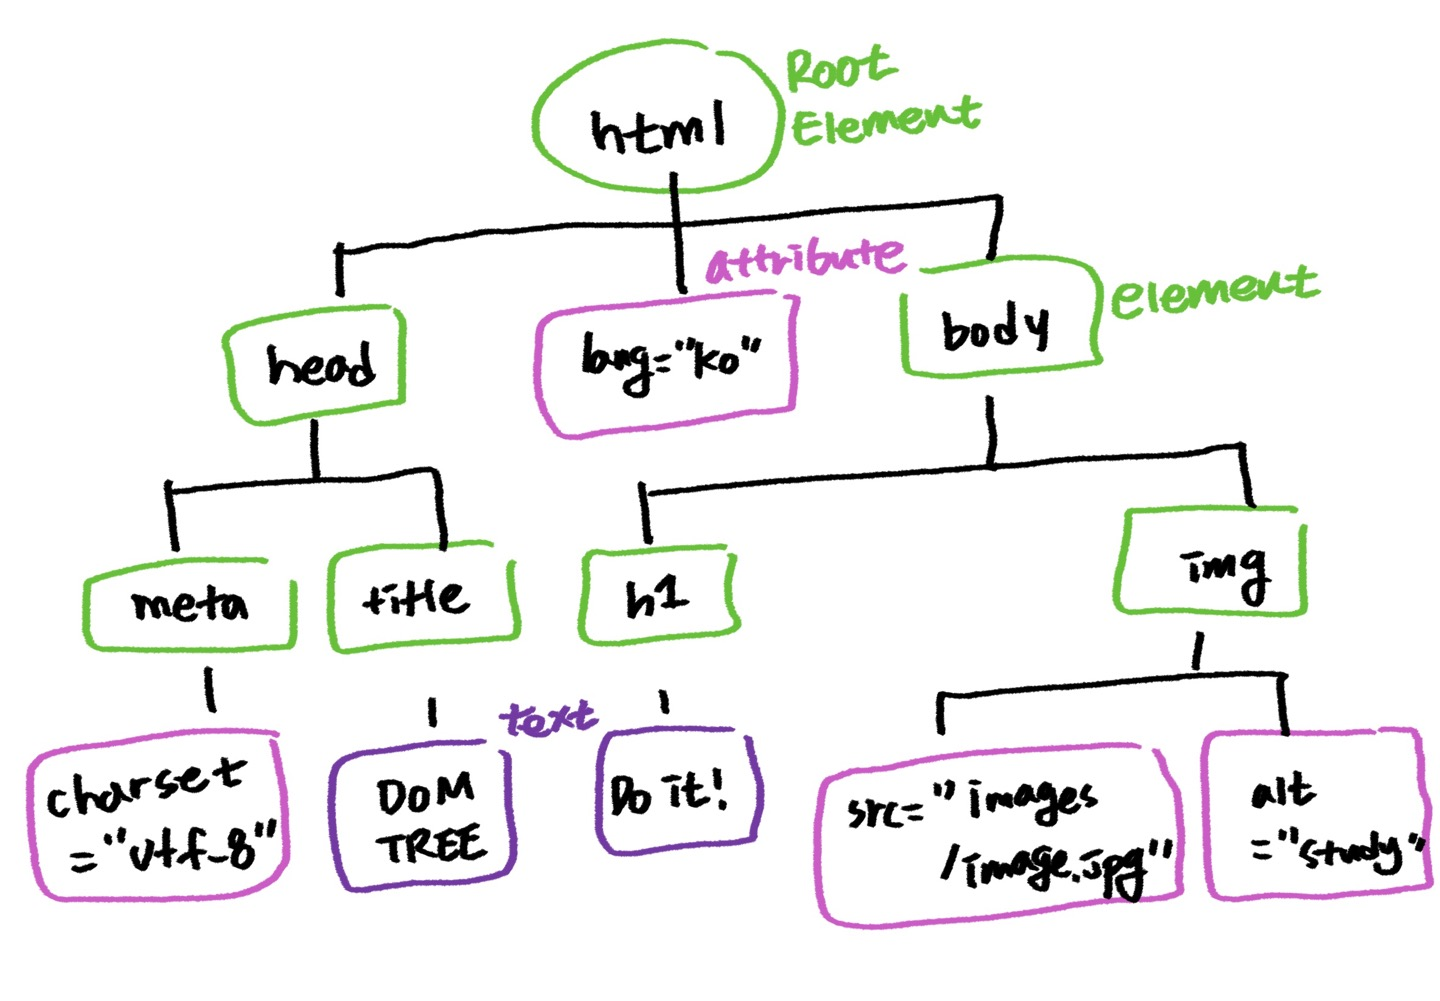 html
Root
Element
attribute
element
head
lang="ko"
body
meta
title
h1
img
text
charset
="utf-8"
DOM
TREE
Do it!
src="images
/image.jpg"
alt
="study"